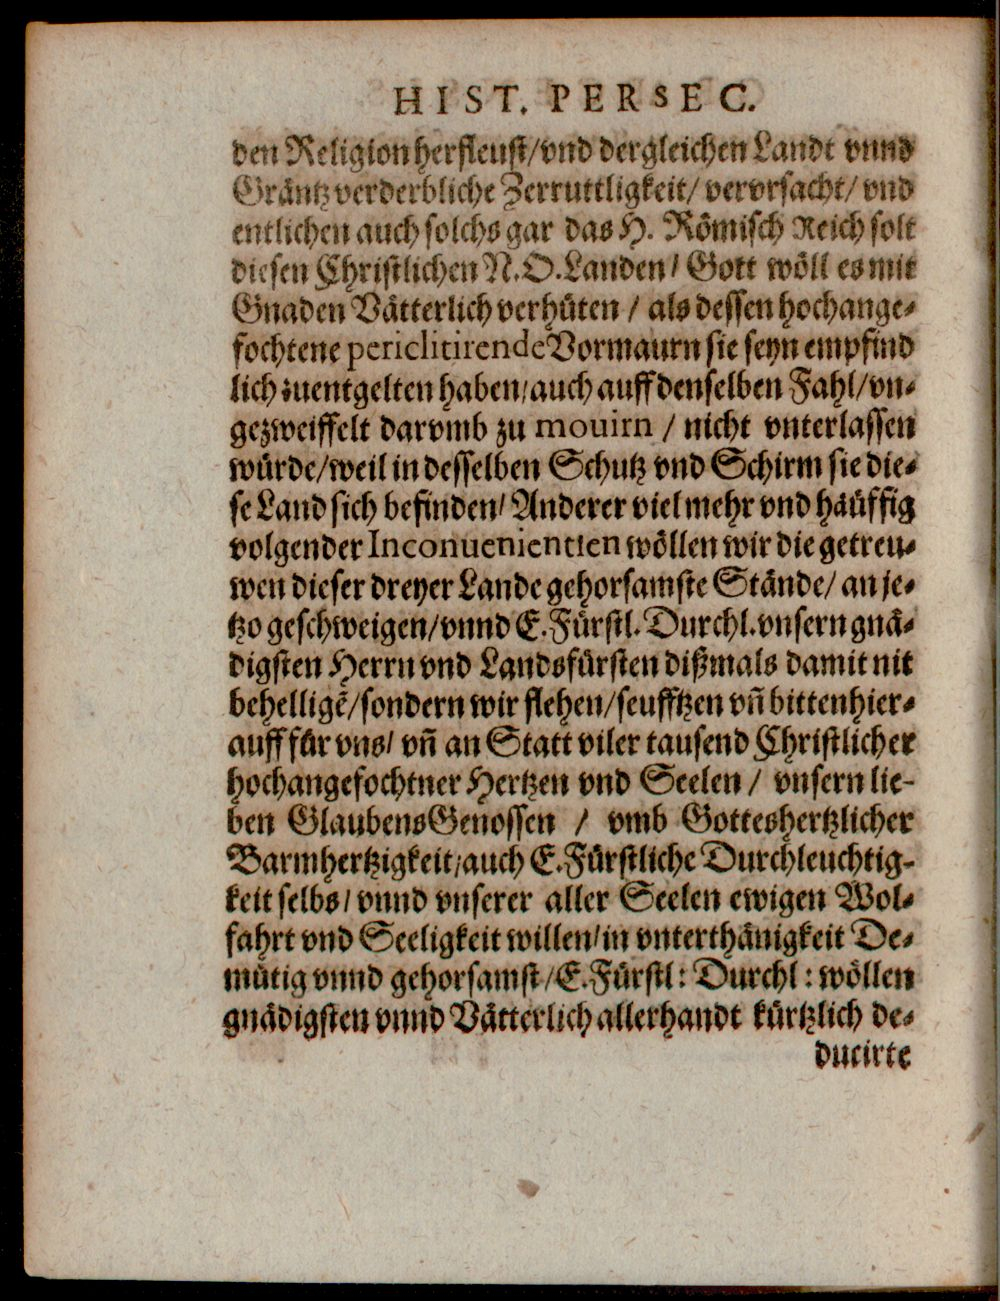 HIST. PERSEC.
den Religion herfleust/vnd dergleichen Landt vnnd
Gräntz verderbliche Zerruttligkeit/ vervrsacht/ vnd
entlichen auch solchs gar das H. Römisch Reich solt
diesen Christlichen N.O.Landen/ Gott wöll es mit
Gnaden Vätterlich verhüten / als dessen hochange-
fochtene periclitirende Vormaurn sie seyn empfind
lich zuentgelten haben/auch auff denselben Fahl/vn-
gezweiffelt darvmb zu mouirn / nicht vnterlassen
würde/weil in desselben Schutz vnd Schirm sie die-
se Land sich befinden/ Anderer viel mehr vnd häuffig
volgender Inconuenientien wöllen wir die getreu-
wen dieser dreyer Lande gehorsamste Stände/ an je-
tzo geschweigen/vnnd E.Fürstl. Durchl.vnsern gnä-
digsten Herrn vnd Landsfürsten dißmals damit nit
behelligẽ/sondern wir flehen/seufftzen vñ bitten hier-
auff für vns/ vñ an Statt viler tausend Christlicher
hochangefochtner Hertzen vnd Seelen / vnsern lie-
ben GlaubensGenossen / vmb Gottes hertzlicher
Barmhertzigkeit/auch E.Fürstliche Durchleuchtig-
keit selbs/ vnnd vnserer aller Seelen ewigen Wol-
fahrt vnd Seeligkeit willen/in vnterthänigkeit De-
mütig vnnd gehorsamst/E.Fürstl: Durchl: wöllen
gnädigsten vnnd Vätterlich allerhandt kürtzlich de-
ducirte